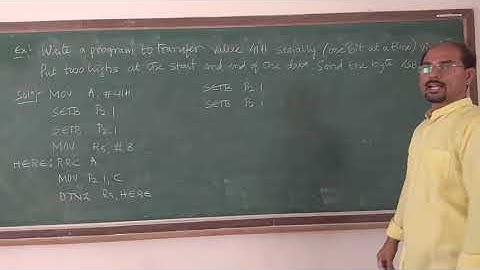 Ex: Write a program to transfer value 41H serially (one bit at a time) vi
Put two highs at the start and end of the data. Send the byte LSB
Soln:- MOV A, #41H
SETB P2.1
SETB P2.1
MOV R5, #8
HERE: RRC A
MOV P2.1, C
DJNZ R5, HERE
SETB P2.1
SETB P2.1